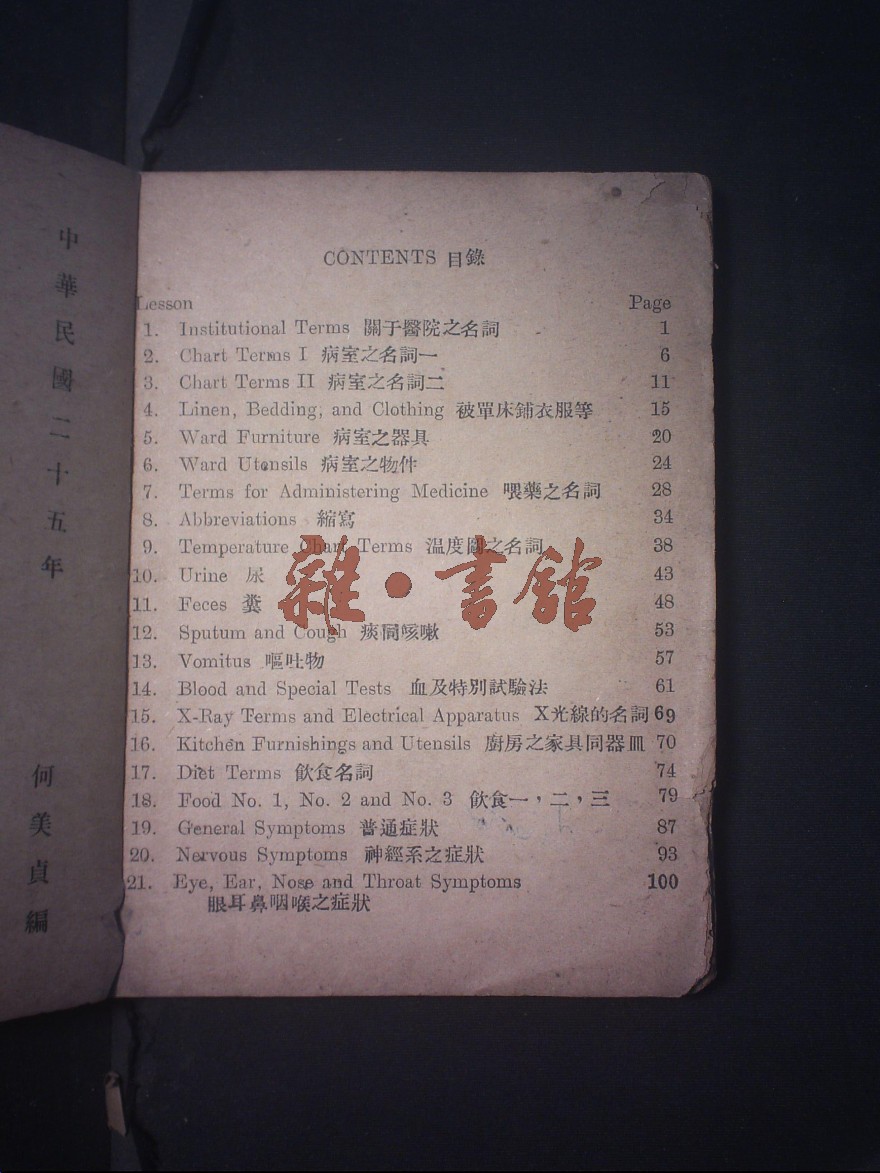 中華民國二十五年
何美貞編
CONTENTS 目錄
Lesson Page
1. Institutional Terms 關于醫院之名詞 1
2. Chart Terms I 病室之名詞一 6
3. Chart Terms II 病室之名詞二 11
4. Linen, Bedding, and Clothing 被單床鋪衣服等 15
5. Ward Furniture 病室之器具 20
6. Ward Utensils 病室之物件 24
7. Terms for Administering Medicine 喂藥之名詞 28
8. Abbreviations 縮寫 34
9. Temperature Chart Terms 温度圖之名詞 38
10. Urine 尿 43
11. Feces 糞 48
12. Sputum and Cough 痰同咳嗽 53
13. Vomitus 嘔吐物 57
14. Blood and Special Tests 血及特別試驗法 61
15. X-Ray Terms and Electrical Apparatus X光線的名詞 69
16. Kitchen Furnishings and Utensils 廚房之家具同器皿 70
17. Diet Terms 飲食名詞 74
18. Food No. 1, No. 2 and No. 3 飲食一，二，三 79
19. General Symptoms 普通症狀 87
20. Nervous Symptoms 神經系之症狀 93
21. Eye, Ear, Nose and Throat Symptoms 100
眼耳鼻咽喉之症狀
雜·書館